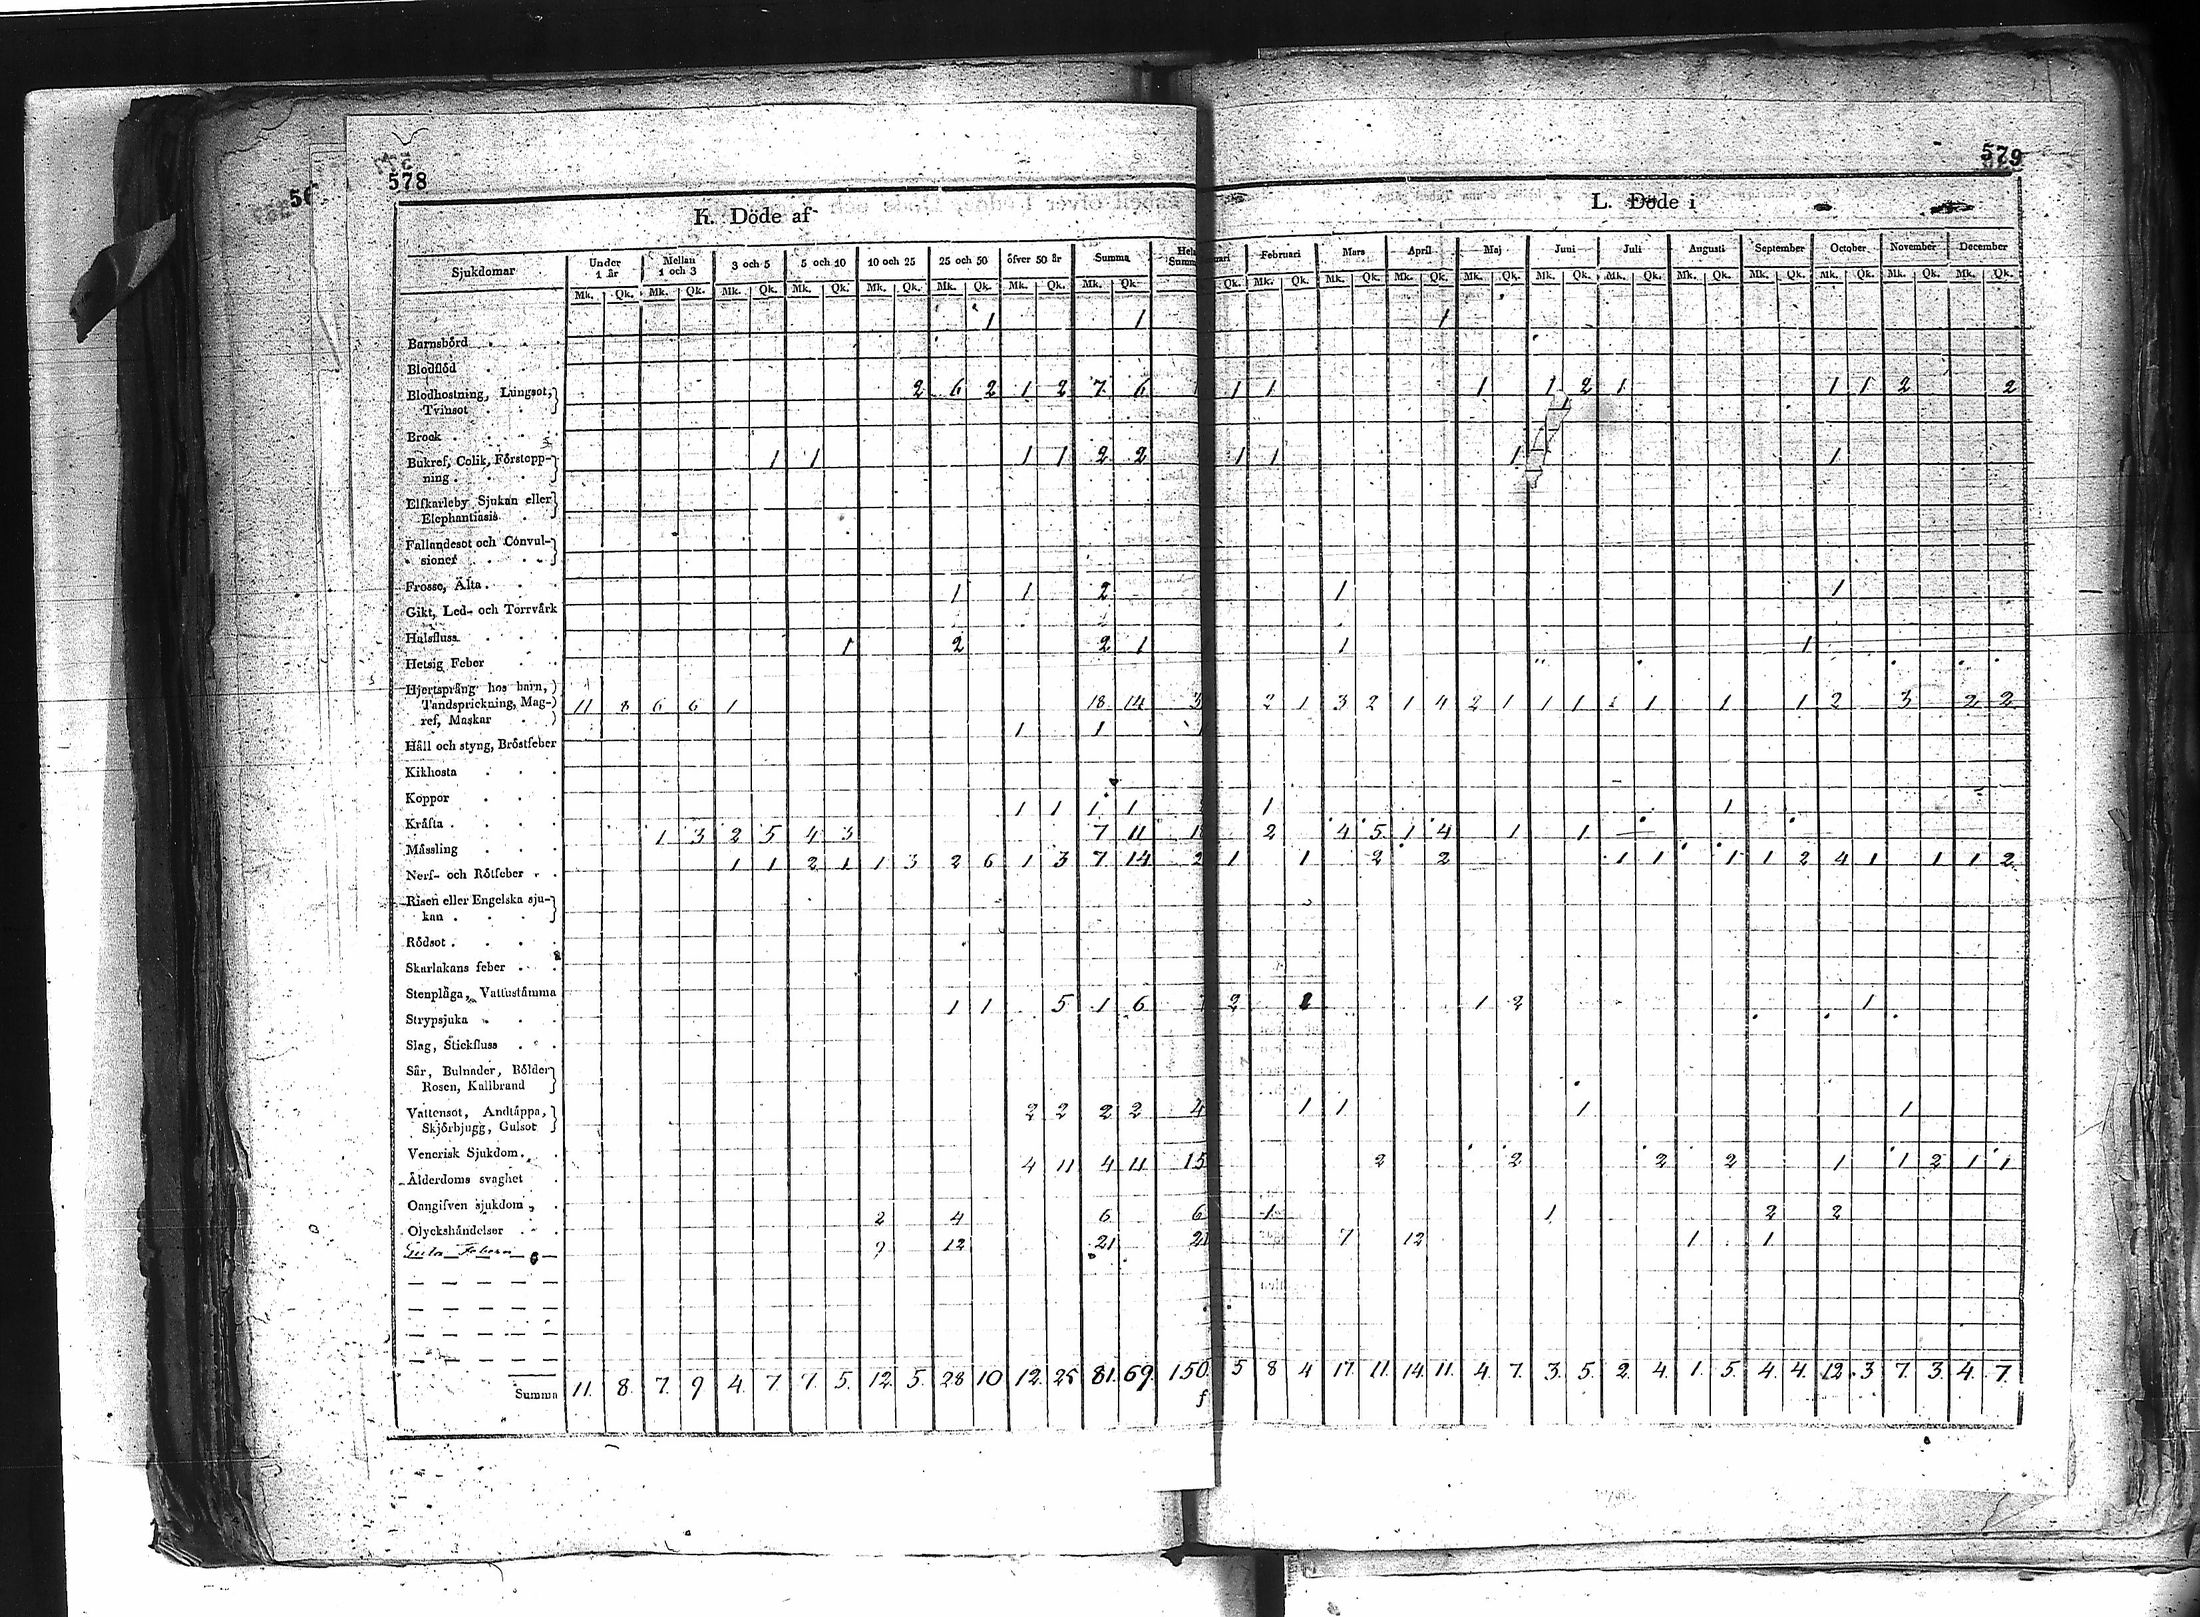 578
579
K. Döde af
L. Döde i
Sjukdomar Under 1 år Mellan 1 och 3 3 och 5 5 och 10 10 och 25 25 och 50 öfver 50 år Summa Februari Mars April Maj Juni Juli Augusti September October November December
Mk. Qk. Mk. Qk. Mk. Qk. Mk. Qk. Mk. Qk. Mk. Qk. Mk. Qk. Mk. Qk. Qk. Mk. Qk. Mk. Qk. Mk. Qk. Mk. Qk. Mk. Qk. Mk. Qk. Mk. Qk. Mk. Qk. Mk. Qk. Mk. Qk. Mk. Qk.
1 1 1
Barnsbörd
Blodflöd
2 6 2 1 2 7 6 1 1 1 1 2 1 1 1 2 2
Blodhostning, Lungsot,
Tvinsot
Brock
1 1 1 1 2 2 1 1 1 1
Bukref, Colik, Förstopp-
ning
Elfkarleby Sjukan eller
Elephantiasis
Fallandesot och Convul-
sioner
Frosso, Älta
1 1 2 1 1
Gikt, Led- och Torrvärk
Halsfluss
1 2 2 1 1 1
Hetsig Feber
Hjertsprång hos barn,
Tandsprickning, Mag-
ref, Maskar
11 8 6 6 1 18 14 3 2 1 3 2 1 4 2 1 1 1 1 1 1 1 2 3 2 2
1 1
Håll och styng, Bröstfeber
Kikhosta
Koppor
1 1 1 1 1 1
Kräfta
1 3 2 5 4 3 7 11 1 2 4 5 1 4 1 1
Mässling
1 1 2 1 1 3 2 6 1 3 7 14 2 1 1 2 2 1 1 1 1 2 4 1 1 1 2
Nerf- och Rötfeber
Risen eller Engelska sju-
kan
Rödsot
Skarlakans feber
Stenplåga, Vattustämma
1 1 5 1 6 2 2 1 2 1
Strypsjuka
Slag, Stickfluss
Sår, Bulnader, Bölder
Rosen, Kallbrand
Vattensot, Andtäppa,
Skjörbjugg, Gulsot
2 2 2 2 4 1 1 1 1
Venerisk Sjukdom
4 11 4 11 15 2 2 2 2 1 1 2 1 1
Ålderdoms svaghet
Oangifven sjukdom
2 4 6 6 1 1 2 2
Olyckshändelser
9 12 21 21 7 12 1 1
Gula Febern
Summa 11. 8. 7. 9 4. 7. 7. 5. 12. 5. 28 10 12. 25 81. 69. 150. 5 8 4 17. 11. 14. 11. 4. 7. 3. 5. 2. 4. 1. 5. 4. 4. 12. 3 7. 3. 4. 7.